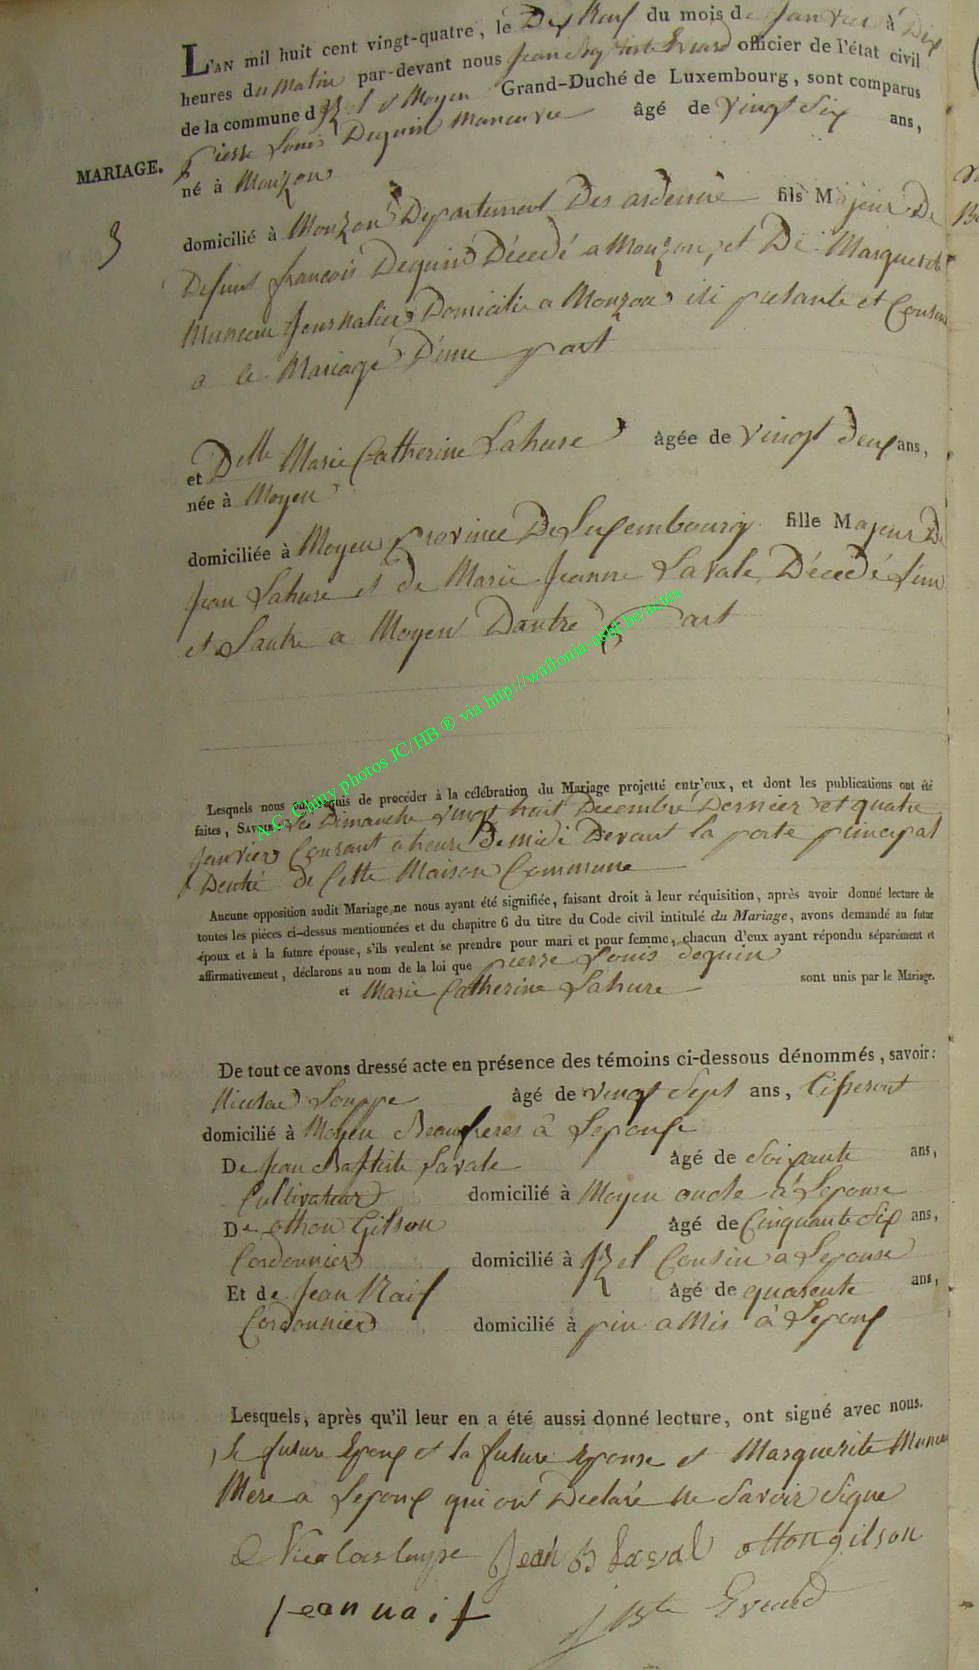 L'AN mil huit cent vingt-quatre, le Dix Neuf du mois de Janvier à Dix
heures du Matin par-devant nous Jean Baptiste Evrard officier de l'état civil
de la commune d'Izel et Moyen Grand-Duché de Luxembourg, sont comparus
Pierre Louis Dequin Maneuvre âgé de Vingt Six ans,
MARIAGE.
né à Mouzon
3
domicilié à Mouzon Departement Des ardenne fils Majeur De
Defunt francois Dequin Décedé a Mouzon, et De Marguerite
Muneau Journalier Domicilie a Mouzon ici presante et Consen
a ce Mariage D'une part
et Delle Marie Catherine Lahure âgée de Vingt Deux ans,
née à Moyen
domiciliée à Moyen province De Luxembourg fille Majeur De
Jean Lahure et de Marie Jeanne Lavale Décedé l'un
et Lautre a Moyen Dautre Part
A.C. Chiny photos JC/HB ® via http://wallonia-asbl.be/actes
Lesquels nous ont requis de procéder à la célébration du Mariage projetté entr'eux, et dont les publications ont été
faites, SAVOIR: Les Dimanche Vingt huit Decembre Dernier et quatre
Janvier Courant a heure De midi Devant la porte principal
Dentré de Cette Maison Commune
Aucune opposition audit Mariage ne nous ayant été signifiée, faisant droit à leur réquisition, après avoir donné lecture de
toutes les pièces ci-dessus mentionnées et du chapitre 6 du titre du Code civil intitulé du Mariage, avons demandé au futur
époux et à la future épouse, s'ils veulent se prendre pour mari et pour femme, chacun d'eux ayant répondu séparément et
affirmativement, déclarons au nom de la loi que pierre Louis dequin
et Marie Catherine Lahure sont unis par le Mariage.
De tout ce avons dressé acte en présence des témoins ci-dessous dénommés, savoir:
Nicolas Louppe âgé de vingt Sept ans, Tisserant
domicilié à Moyen Beaufreres à Lepouse
De Jean Baptiste Lavale âgé de Soixante ans,
Cultivateur domicilié à Moyen oncle a Lepouse
De othon Gilson âgé de Cinquante Six ans,
Cordonnier domicilié à Izel Cousin a Lepouse
Et de Jean Naif âgé de quarente ans,
Cordonnier domicilié à pin a Mis à Lepoux
Lesquels, après qu'il leur en a été aussi donné lecture, ont signé avec nous.
le future Epoux et la future Epouse et Marguerite Muneau
Mere a Lepoux qui ont Declaré ne Savoir Signe
Nicolas loupe Jean B Laval otton gilson
Jean naif J Bte Evrard